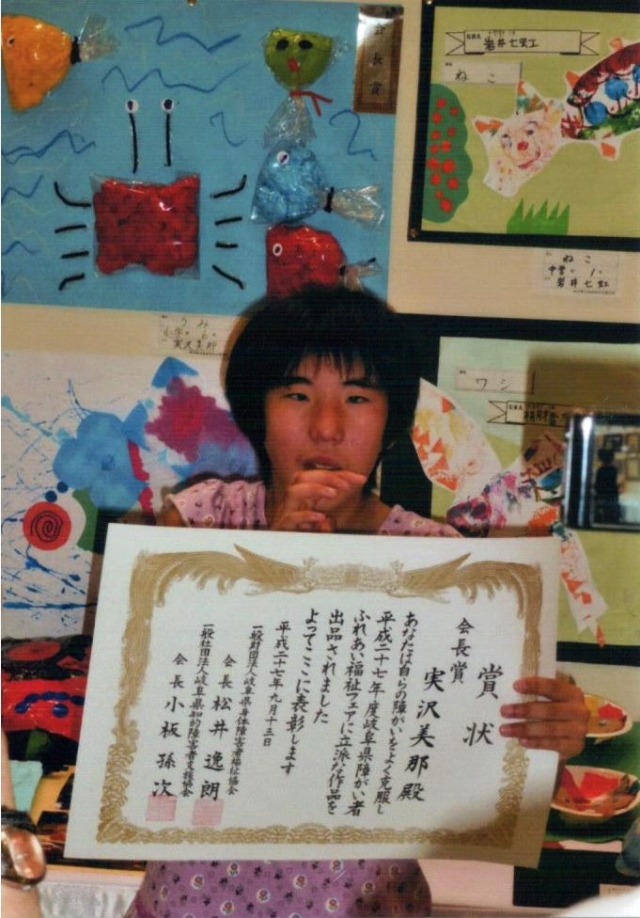 会長賞
岩井七虹
ねこ
ねこ
中学 1
岩井七虹
うみ
小学 6
実沢美那
ワシ
賞状
会長賞
実沢美那殿
あなたは自らの障がいをよく克服し
平成二十七年度岐阜県障がい者
ふれあい福祉フェアに立派な作品を
出品されました
よってここに表彰します
平成二十七年九月十三日
一般財団法人岐阜県身体障害者福祉協会
会長 松井逸朗
一般社団法人岐阜県知的障害者支援協会
会長 小板孫次